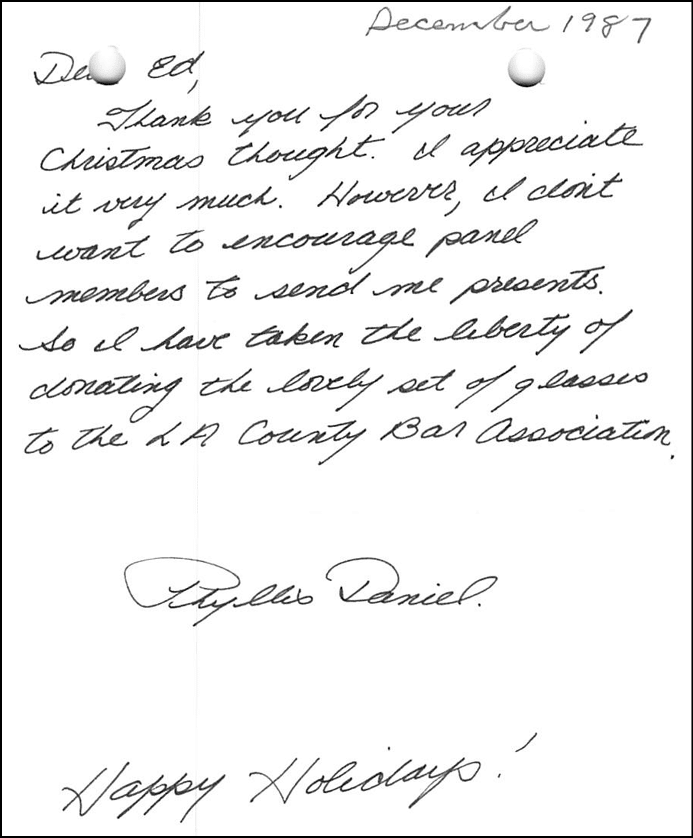 December 1987
Dear Ed,
Thank you for your
Christmas thought. I appreciate
it very much. However, I don't
want to encourage panel
members to send me presents.
So I have taken the liberty of
donating the lovely set of glasses
to the LA County Bar Association.
Phyllis Daniel.
Happy Holidays!